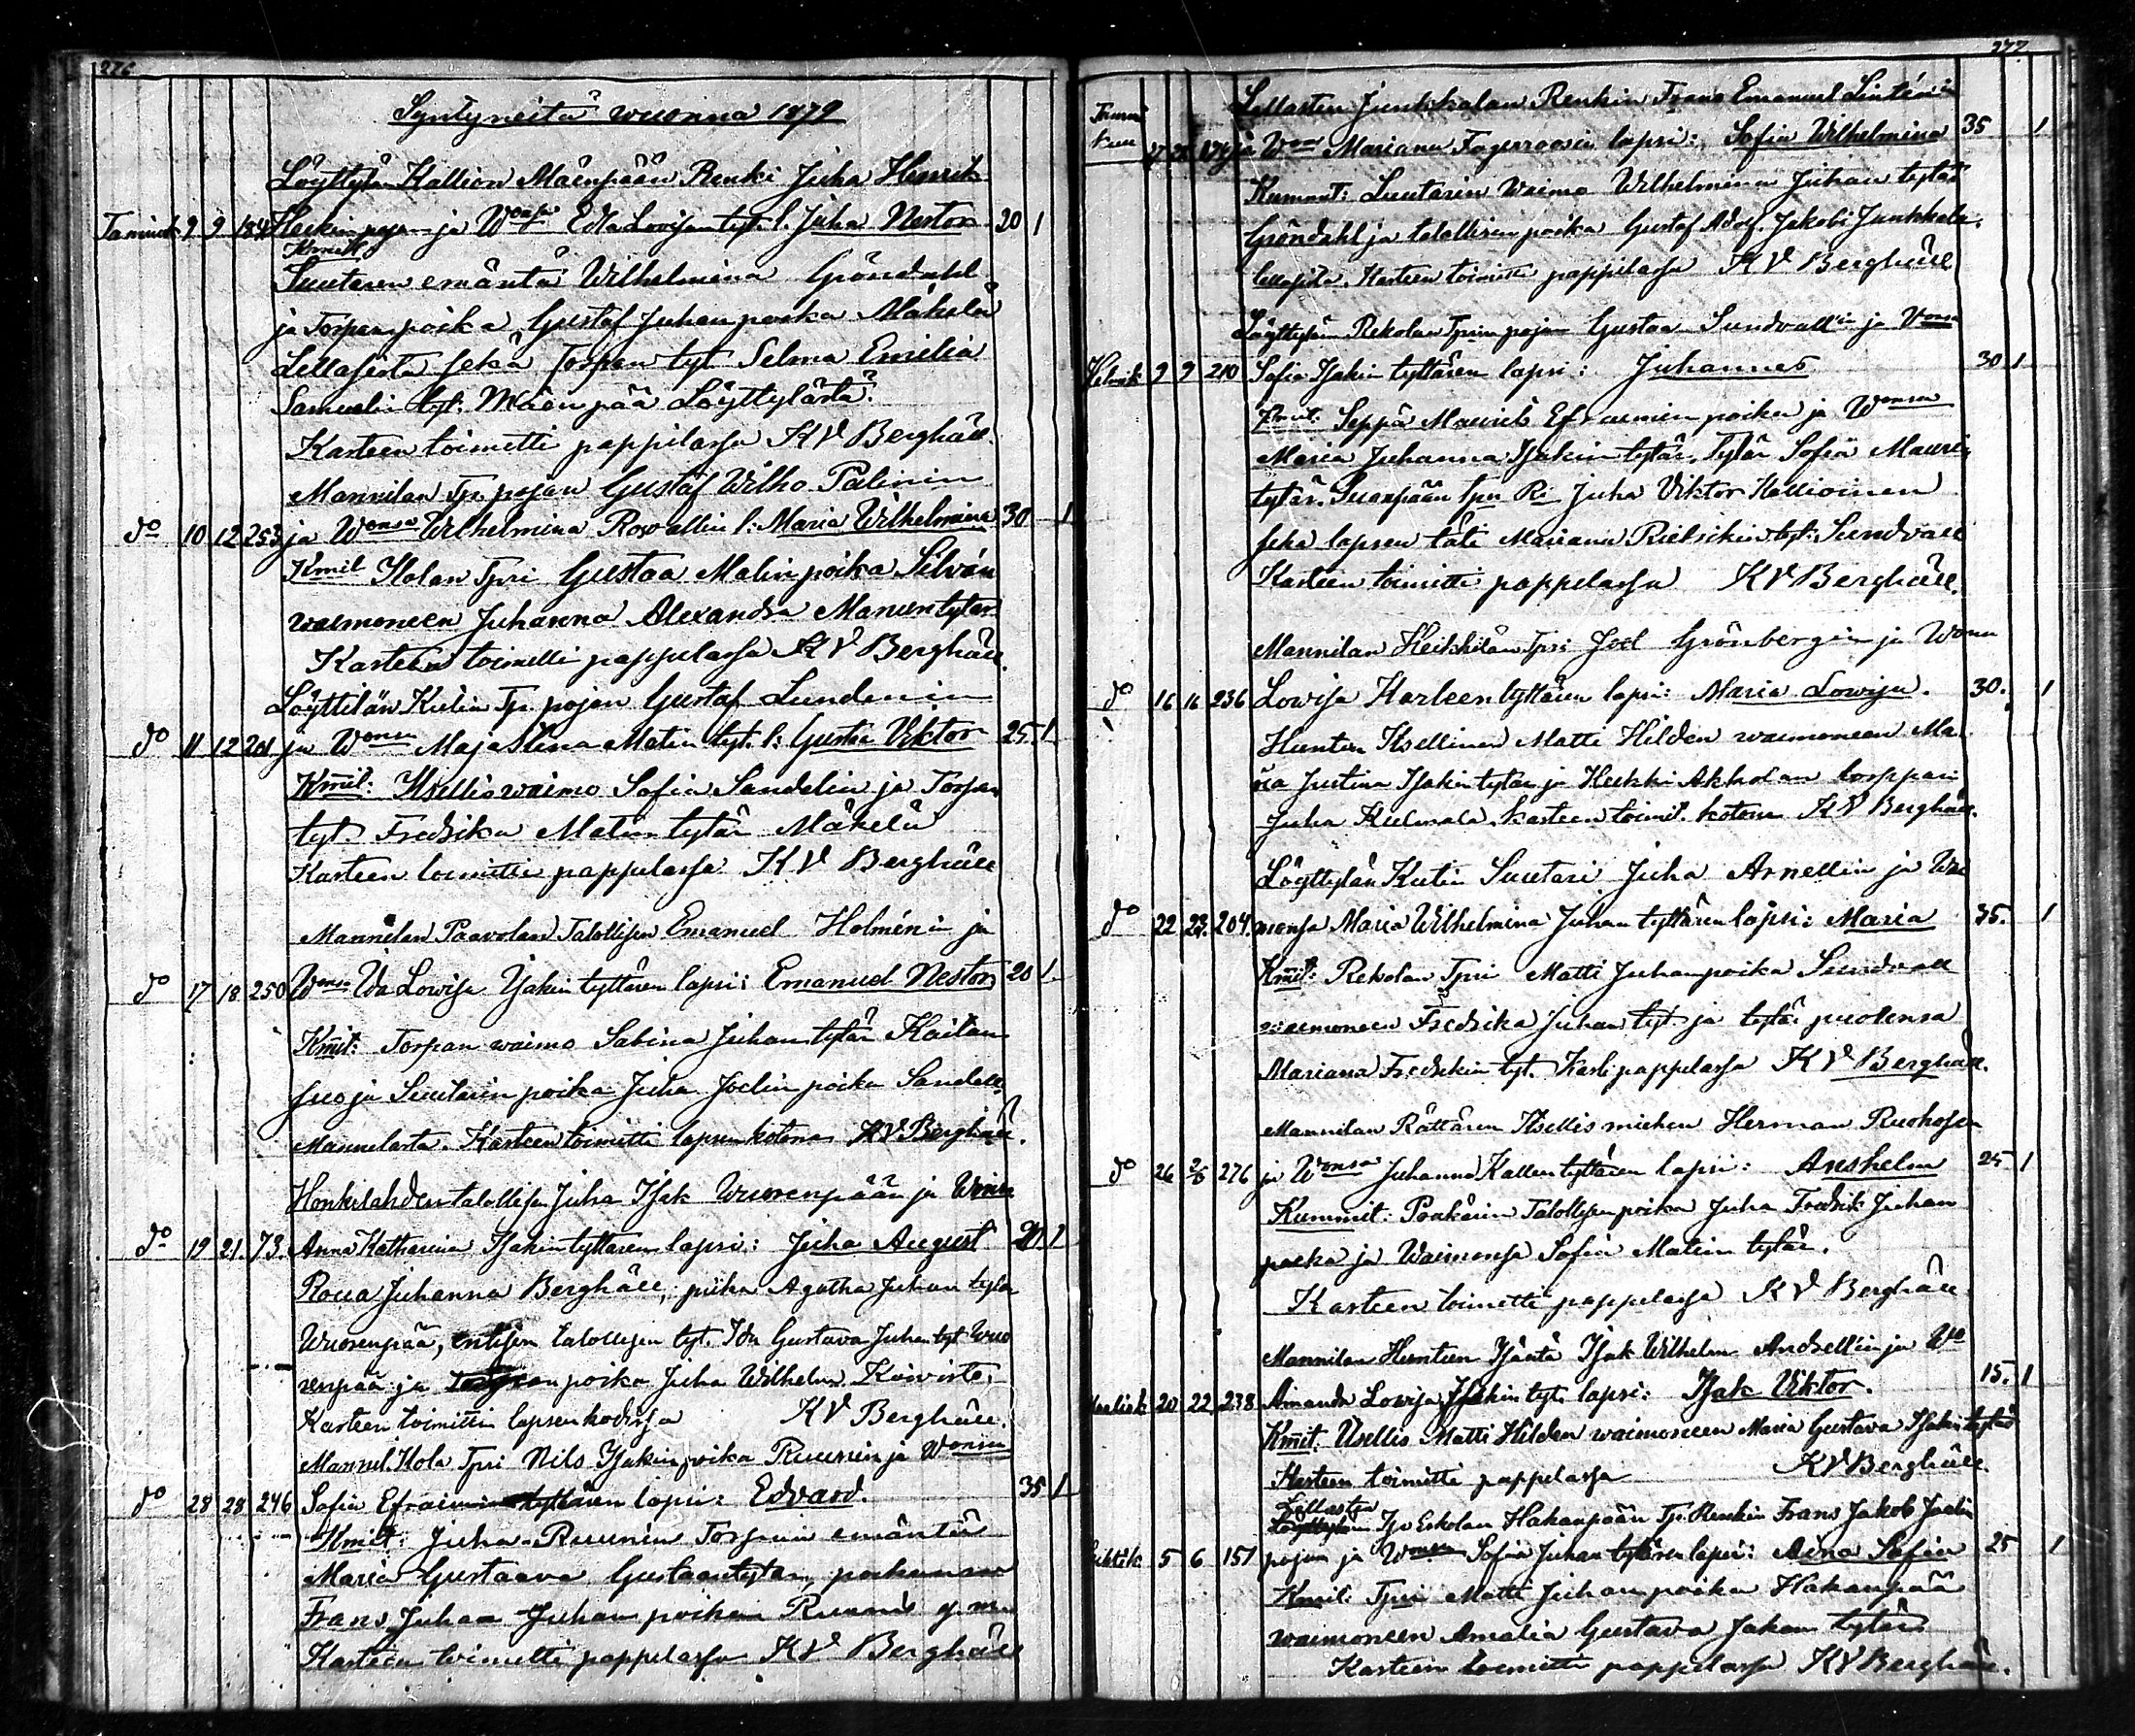 276
Syntyneitä wuonna 1879
Löyttylän Kallion Mäenpään Renki Juha Henrik
Tammik 9 9 184 Heikinpojan ja Wonsa Edla Lovisan tyt. l. Juha Nestor 30 1
Kmit
Suutaren emäntä Wilhelmina Gröndahl
ja Torpan poika Gustaf Juhanpoika Mäkelä
Lellasista sekä Torpan tyt Selma Emilia
Samuelin tyt. Mäenpää Löyttylästä.
Kasteen toimitti pappilassa K V Berghäll
Mannilan Tpr. pojan Gustaf Wilho Palinin
do 10 12 253 ja Wonsa Wilhelmina Rosvallin l: Maria Wilhelmina 30 1
Kmit Ilolan Tpri Gustaa Matinpoika Silván
waimoneen Juhanna Alexandra Manuntytär
Kasteen toimitti pappilassa K V Berghäll.
Löyttilän Kutin Tp. pojan Gustaf Lundenin
do 11 12 201 ja Wonsa Maja Stina Matin tyt. l: Gustaa Viktor 25. 1.
Kmit: Itselliswaimo Sofia Sandelin ja Torpan
tyt. Fredrika Matin tytär Mäkelä
Kasteen toimitti pappilassa K V Berghäll
Mannilan Paavolan Talollisen Emanuel Holménin ja
do 17 18 250 Wonsa Ida Lowisa Isakin tyttären lapsi: Emanuel Nestor 20 1.
Kmit: Torpan waimo Sabina Juhan tytär Kaitan
suo ja Suutarin poika Juha Joelin poika Sandell
Mannilasta. Kasteen toimitti lapsen kotona K V Berghäll.
Honkilahden talollisen Juha Isak Wuorenpään ja Wmon
do 19 21. 73. Anna Katharina Isakin tyttären lapsi: Juha August 20. 1
Roua Juhanna Berghäll, piika Agatha Juhan tytär
Wuorenpää, entisen talollisen tyt. Ida Gustava Juhan tyt Wuo
renpää ja poika Juha Wilhelm Koivisto,
Kasteen toimittiin lapsen kodissa K V Berghäll.
Mannil. Ilola Tpri Nils Isakinpoika Ruunin ja Wonsa
do 28 28 246 Sofia Efraimin tyttären lapsi: Edvard. 35 1
Kmit: Juha Ruunin Torpan emäntä
Maria Gustaava Gustaantytär, poikansa
Frans Juhan Juhan poikan Ruuni y. m.
Kasteen toimitti pappilassa K V Berghäll
277
Lellasten Junkkalan Renkin Frans Emanuel Lintónin
Tammi
kuu 27 28 ja Won Mariana Fagerroosin lapsi: Sofia Wilhelmina 35 1
Kummit: Suutarin Waimo Wilhelmina Juhan tytär
Gröndahl ja talollisen poika Gustaf Adof. Jakobi Junkkala.
Lellasista. Kasteen toimitti pappilassa K V Berghäll
Löyttylän Rekolan Tprin pojan Gustaa Sundvall'in ja Vonsa
Helmik 9 9 210 Sofia Isakin tyttären lapsi: Juhannes 30 1
Kmit. Seppä Maurits Efraimin poika ja Wonsa
Maria Juhanna Isakin tytär, Tytär Sofia Mauri
tytär. Suanpään Tpn Ri Juha Viktor Kallioinen
sekä lapsen täti Mariana Rietrikin tyt. Sundvall
Kasteen toimitti pappilassa K V Berghäll.
Mannilan Heikkilän Tpri Joel Grönbergin ja Womn
do 16 16 236 Lowisa Karleen tyttären lapsi: Maria Lowisa. 30. 1
Huntin Itsellinen Matti Hilden waimoneen Ma
ria Justina Isakin tytär ja Heikki Akkolan torppari
Juha Kulmala. Kasteen toimit. kotona K V Berghäll.
Löyttylän Kutin Suutari Juha Arnellin ja Wai
do 22 23. 204. monsa Maria Wilhelmina Juhan tyttären lapsi: Maria 35. 1
Kmit: Rekolan Tpri Matti Juhanpoika Sundvall
waimoneen Fredrika Juhan tyt. ja tytär puolensa
Mariana Fredrikin tyt. Kast. pappilassa K V Berghäll.
Mannilan Rättärin Itsellis miehen Herman Ruohosen
do 26 276 ja Wonsa Juhanna Kallen tyttären lapsi: Anshelm 25 1
Kummit: Prakärin Talollisen poika Juha Fredrik Juhan
poika ja Waimonsa Sofia Matin tytär.
Kasteen toimitti pappilassa K V Berghäll
Mannilan Huntin Isäntä Isak Wilhelm Andsellin ja Wo
Maalisk 20 22. 238 Amanda Lowisa Isakin tyt. lapsi: Isak Viktor. 15. 1
Kmit. Itsellis Matti Hilden waimoneen Maria Gustava Isakin tytär
Kasteen toimitti pappilassa K V Berghäll.
Lellasten
Tpr Eskolan Hakanpään Tp. Renkin Frans Jakob Joelin
Huhtik 5 6 151 pojan ja Wonsa Sofia Juhan tyttären lapsi: Aina Sofia 25 1
Kmit: Tpri Matti Juhanpoika Hakanpää
waimoneen Amalia Gustava Jakon tytär
Kasteen toimitti pappilassa K V Berghäll.